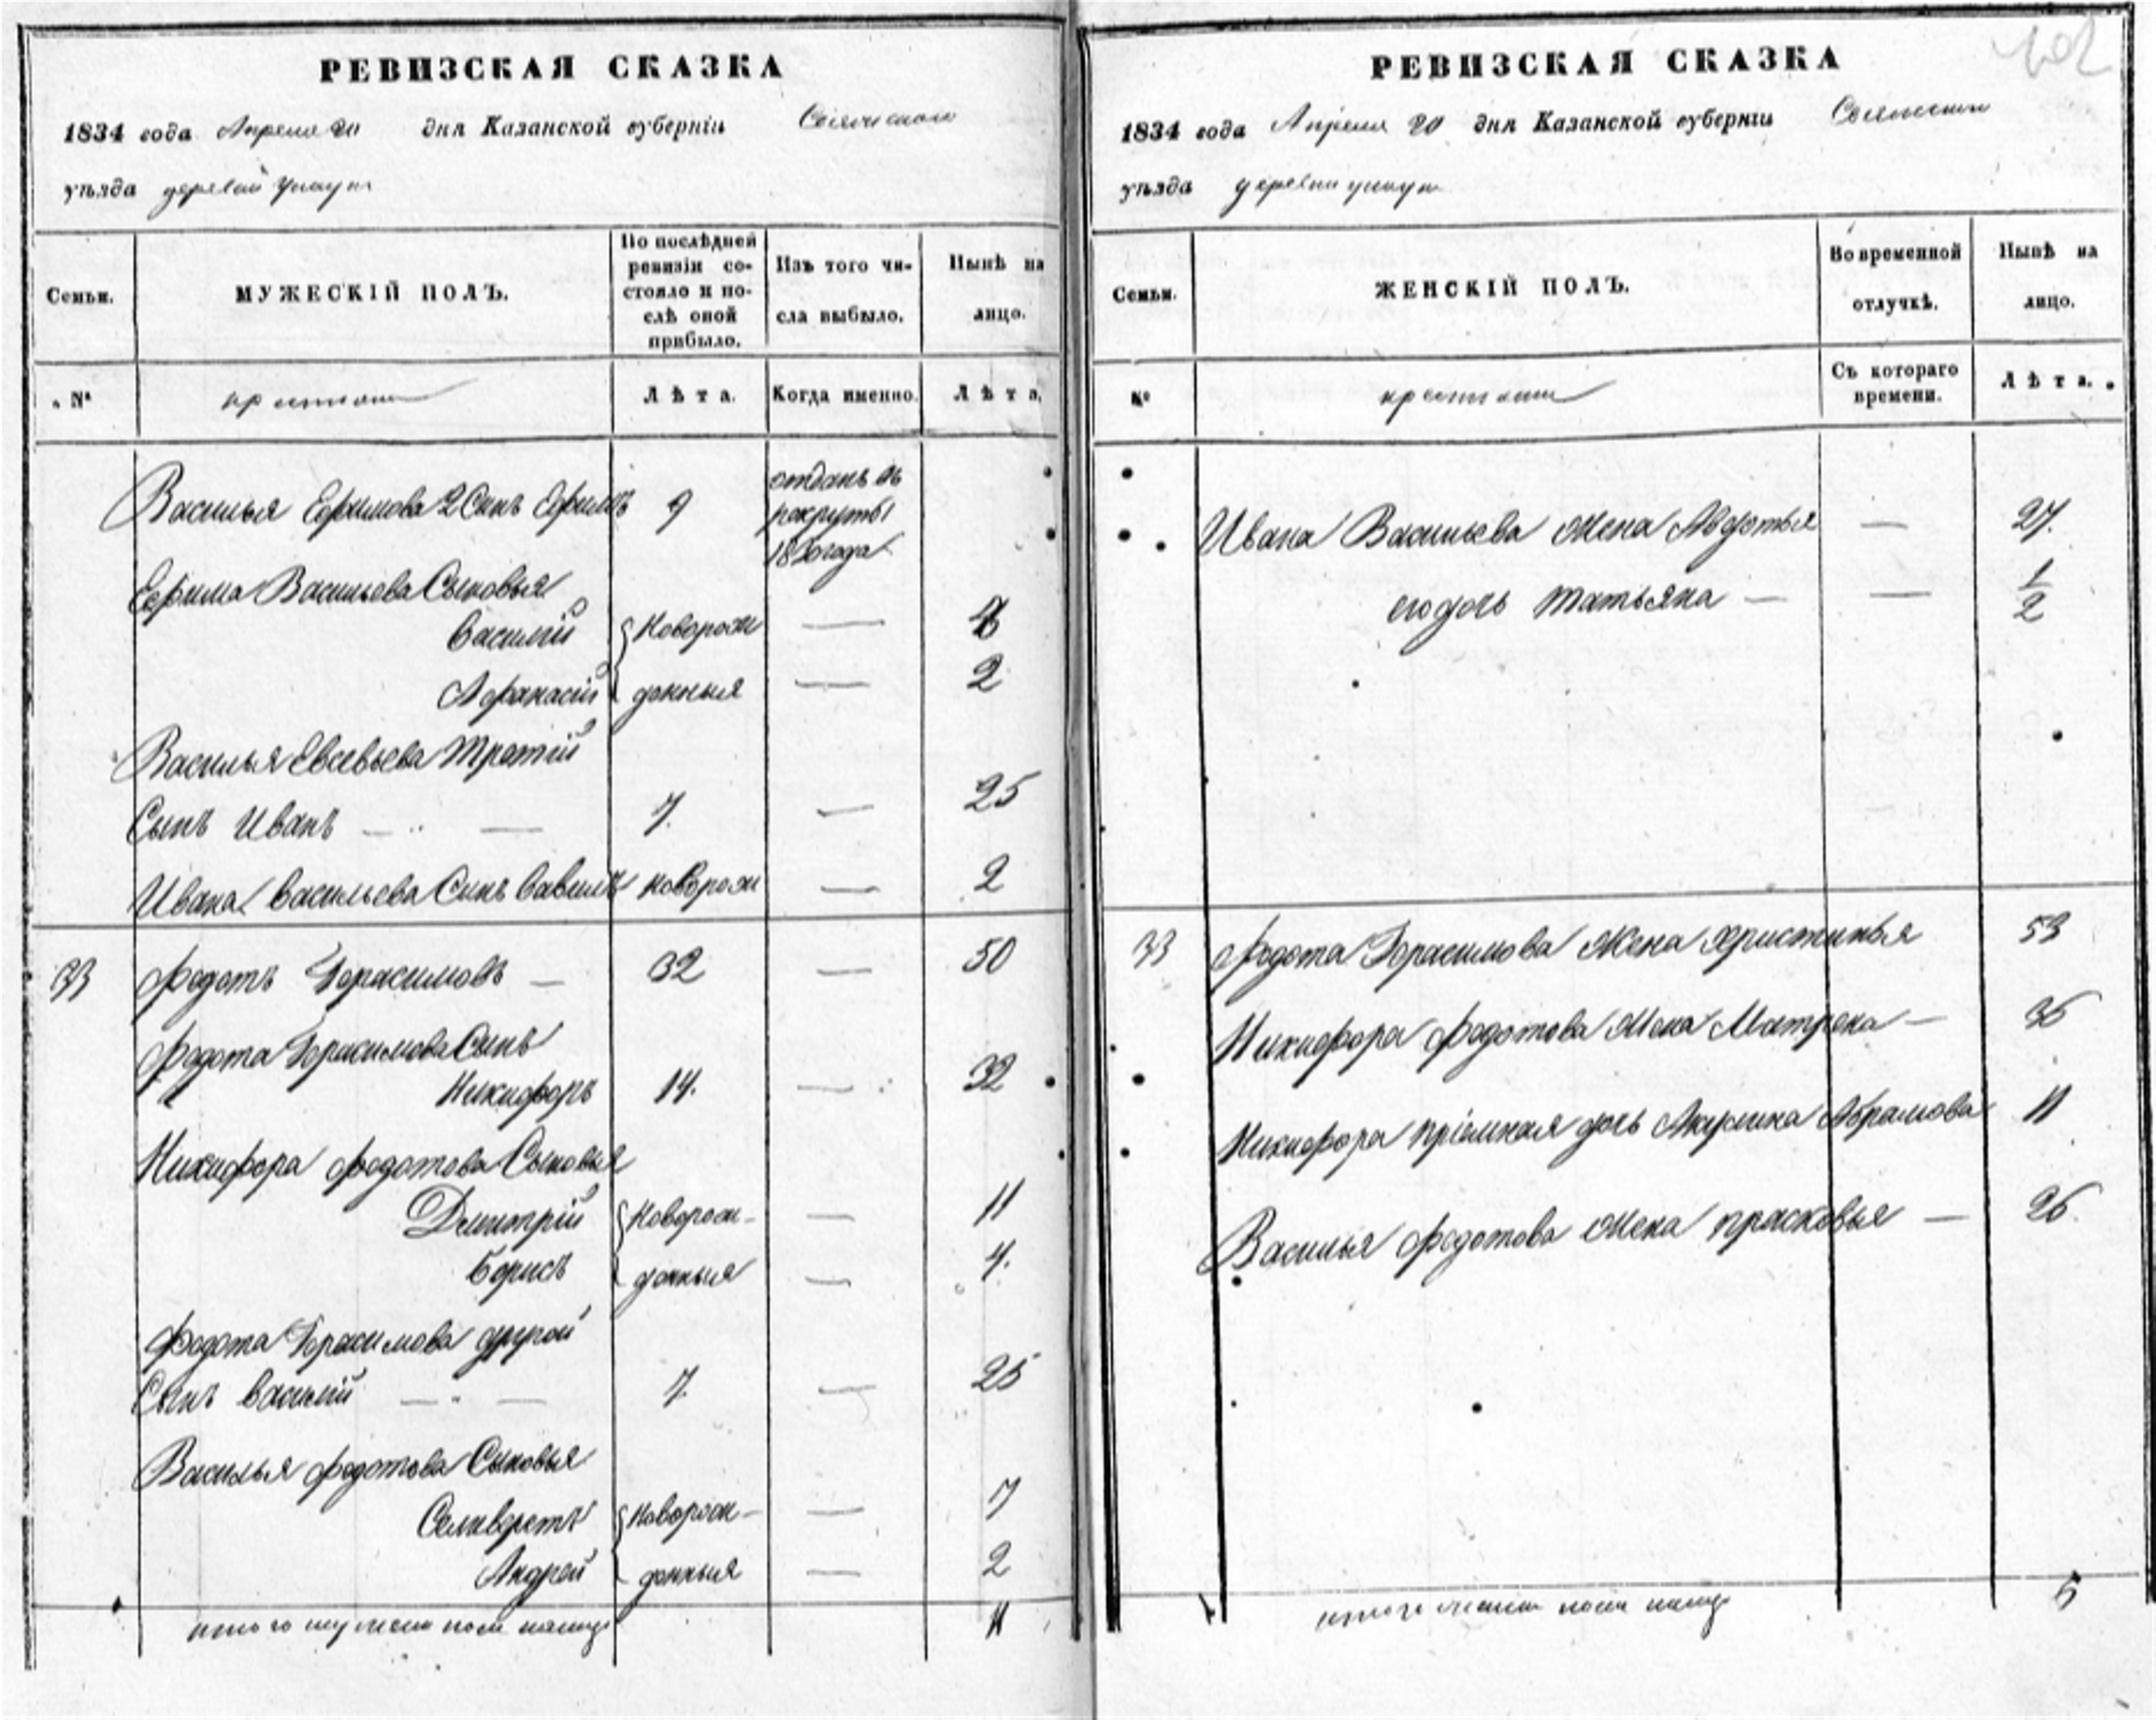 РЕВИЗСКАЯ СКАЗКА
1834 года Апреля 20 дня Казанской губерніи
уѣзда деревни
Семьи.
МУЖЕСКІЙ ПОЛЪ.
По послѣдней
ревизіи со-
стояло и по-
слѣ оной
прибыло.
Изъ того чи-
сла выбыло.
Нынѣ на
лицо.
№
крестьяне
Лѣта.
Когда именно.
Лѣта.
Василья Ефимова 2 Сынъ Ефимъ 9
отданъ въ
рекруты
года
Ефима Васильева Сыновья
Василій Новорож —
Афанасій денныя — 2
Василья Евсевьева Третій
Сынъ Иванъ — 7. — 25
Ивана Васильева Сынъ Вавилъ новорож — 2
33 Федотъ Герасимовъ — 32 — 50
Федота Герасимова Сынъ
Никифоръ 14. — 32
Никифора Федотова Сыновья
Дмитрій Новорож- — 11
Борисъ денныя — 4.
Федота Герасимова другой
Сынъ Василій — 7. — 25
Василья Федотова Сыновья
Селиверстъ Новорож- — 7
Андрей денныя — 2
итого мужеска пола налицо 11
РЕВИЗСКАЯ СКАЗКА
1834 года Апреля 20 дня Казанской губерніи
уѣзда деревни
Семьи.
ЖЕНСКІЙ ПОЛЪ.
Во временной
отлучкѣ.
Нынѣ на
лицо.
№
крестьяне
Съ котораго
времени.
Лѣта.
Ивана Васильева Жена Авдотья — 27.
его дочь Татьяна — — 1/2
33 Федота Герасимова Жена Христинья 53
Никифора Федотова Жена Матрена — 36
Никифора пріемная дочь Акулина Абрамова 11
Василья Федотова Жена Прасковья — 26
итого женска пола налицо